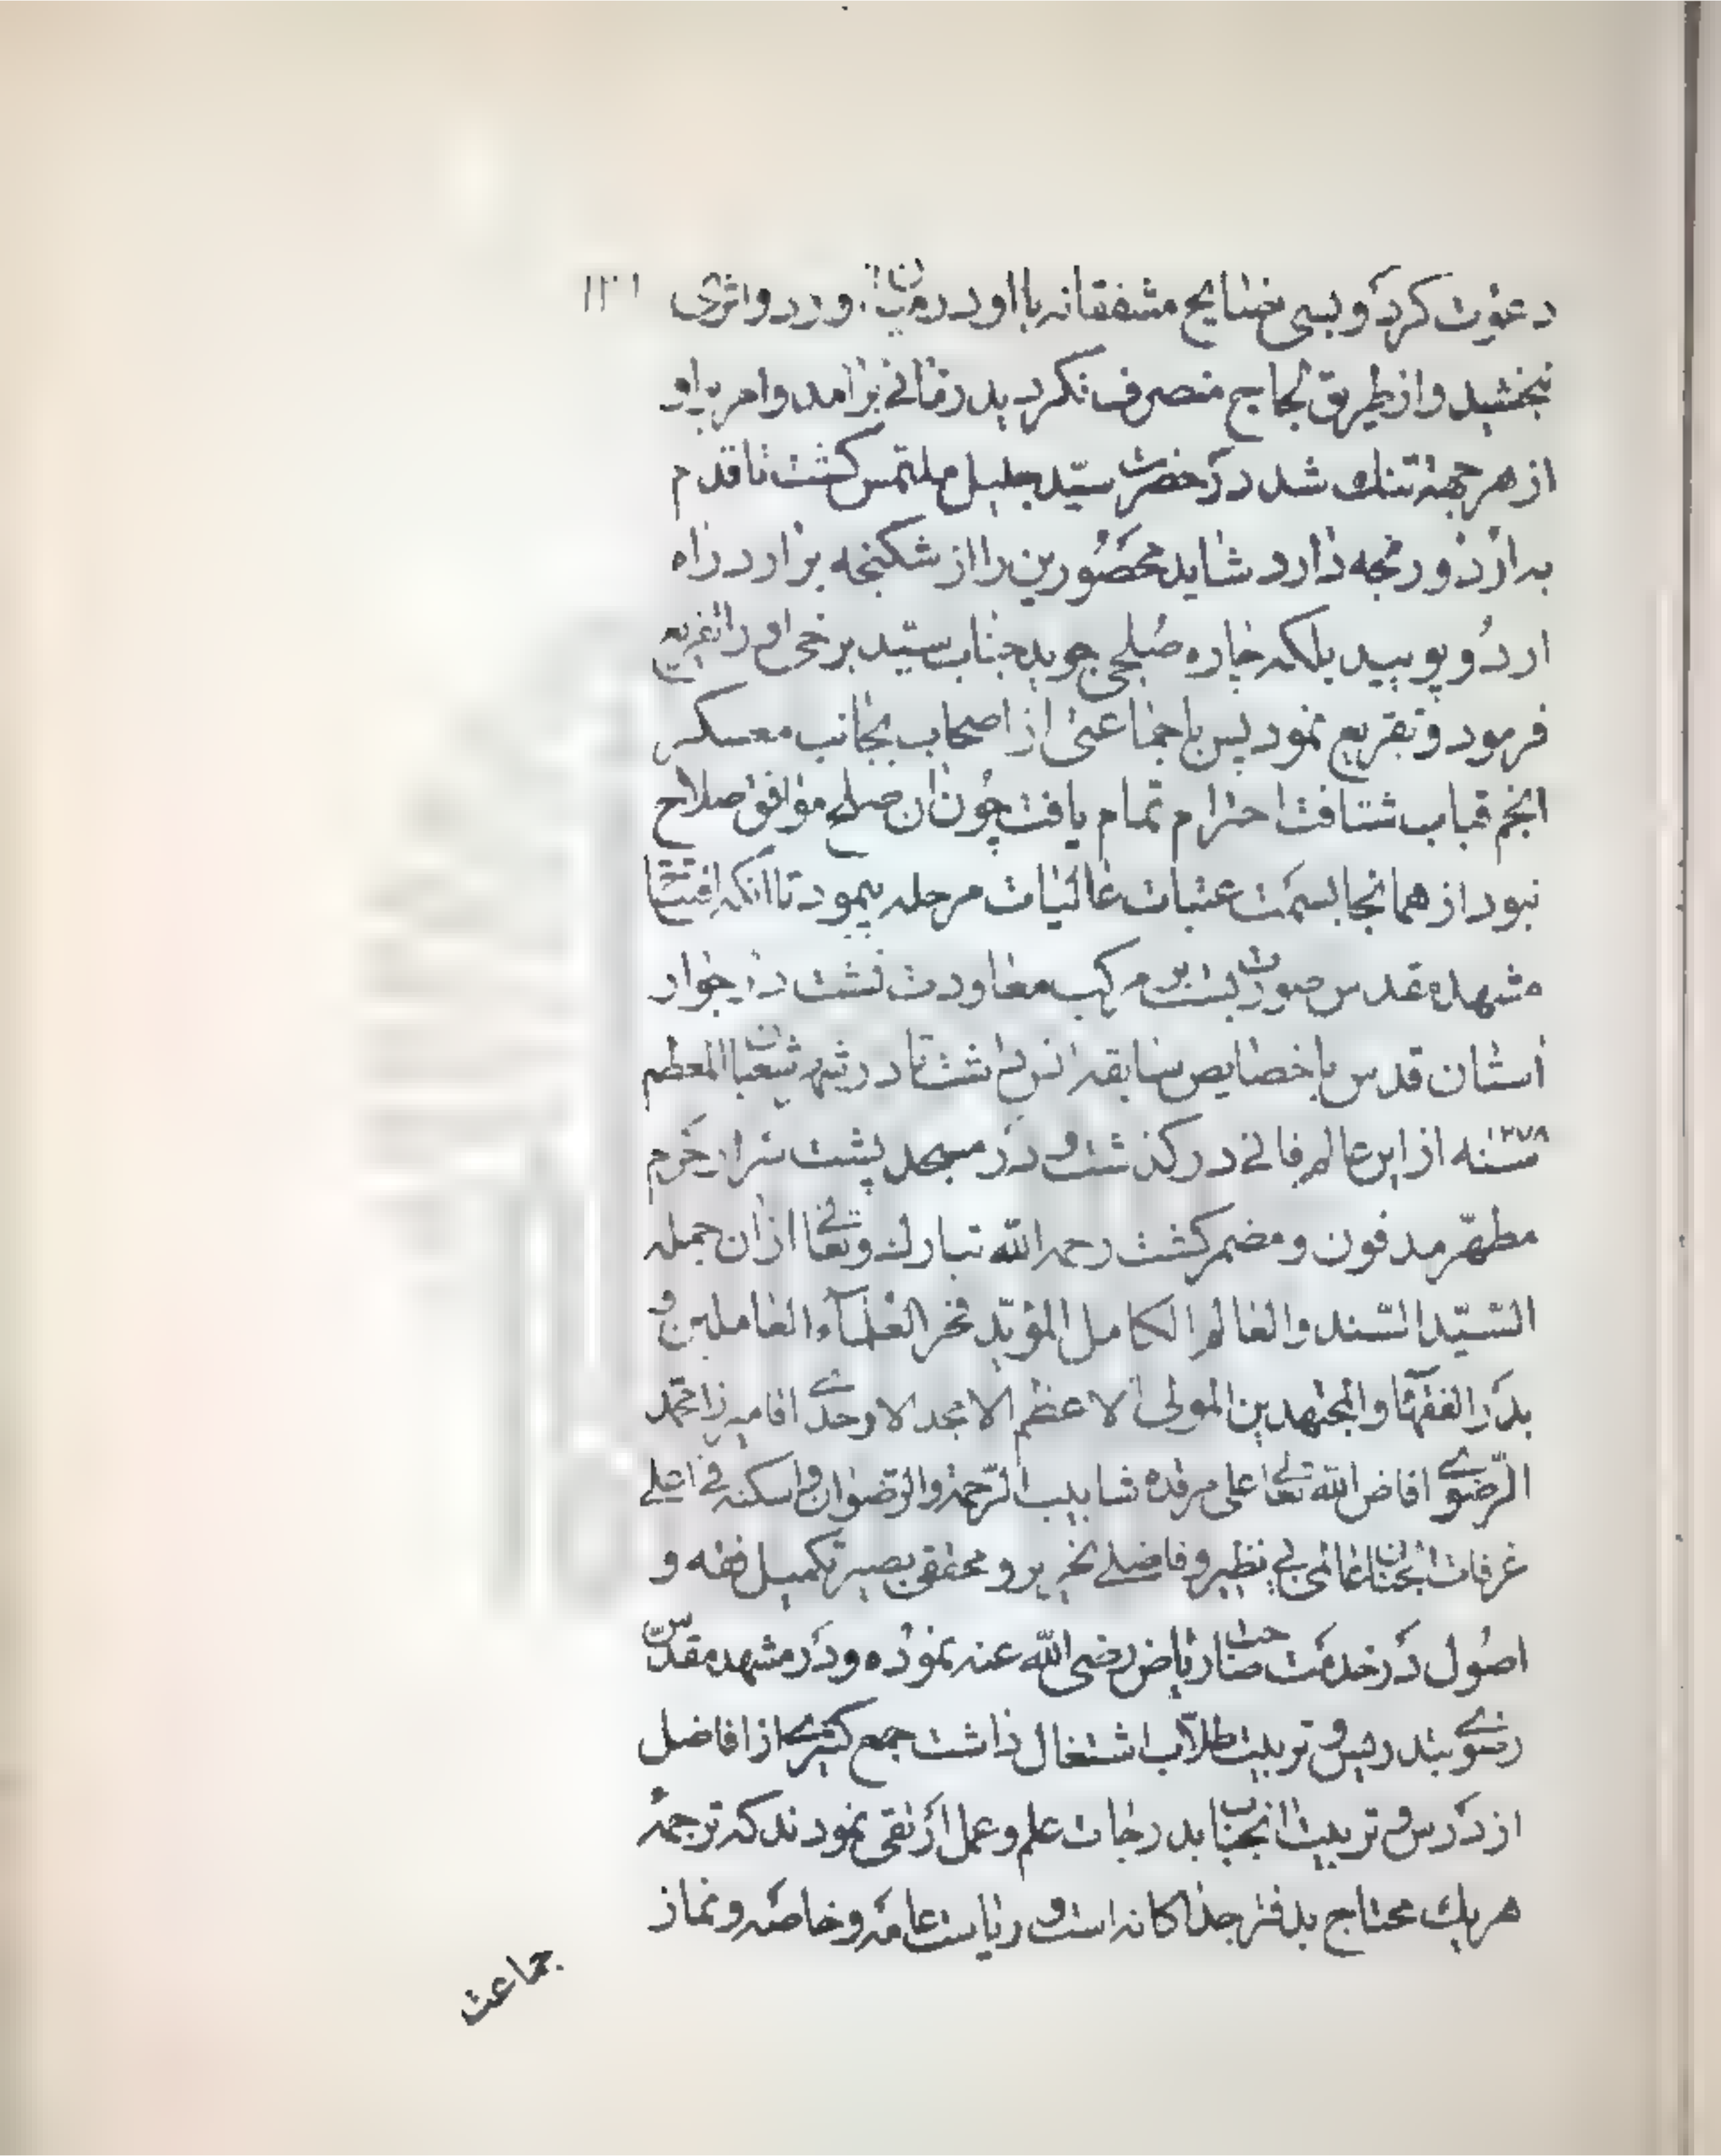 دعوت کرد و بسی نصایح مشفقانه با او در میان آورد و اثری
نبخشید و از طریق لجاج منصرف نکردید در زمانی برآمد و امر بر او
از هر جهة تنك شد در حضرت سید جلیل ملتمس کشت تا قدم
بدان رنجه دارد شاید محصورین را از شکنجه برارد راه
اردو پویید بلکه چاره صلحی جوید جناب سید برخی او را تقریع
فرمود و تقریع نمود پس با جماعتی از اصحاب بجانب معسکر
انجم قباب شتافت احترام تمام یافت چون ان صلح موافق صلاح
نبود از همانجا بسمت عتبات عالیات مرحله پیمود تا انکه افتتاح
مشهد مقدس صورت بست بر مرکب معاودت نشست در جوار
آستان قدس با خصایص سابقه انس داشت تا در شهر شعبان المعظم
سنه ۱۲۷۸ از این عالم فانی درکذشت و در مسجد پشت سر از حرم
مطهّر مدفون و مضمر کشت رحمه الله تبارك و تعالی از ان جمله
السّیّد السّند و العالم الکامل المؤیّد فخر العلمآء العاملین و
بدر الفقهآء و المجتهدین المولی الاعظم الامجد الاوحدی اقا میرزا محمد
الرّضوی افاض الله تعالی علی مرقده شابیب الرّحمة و الرّضوان و اسکنه فی اعلی
غرفات الجنان عالمی بی نظیر و فاضلی نحریر و محققی بصیر تکمیل فقه و
اصول در خدمت صاحب ریاض رضی الله عنه نموده و در مشهد مقدّس
رضوی بتدریس و تربیت طلّاب اشتغال داشت جمع کثیری از افاضل
از درس و تربیت انجناب بدرجات علم و عمل ارتقی نمودند که ترجمۀ
هر یك محتاج بدفتر جداکانه است و ریاست عامه و خاصه و نماز
جماعت